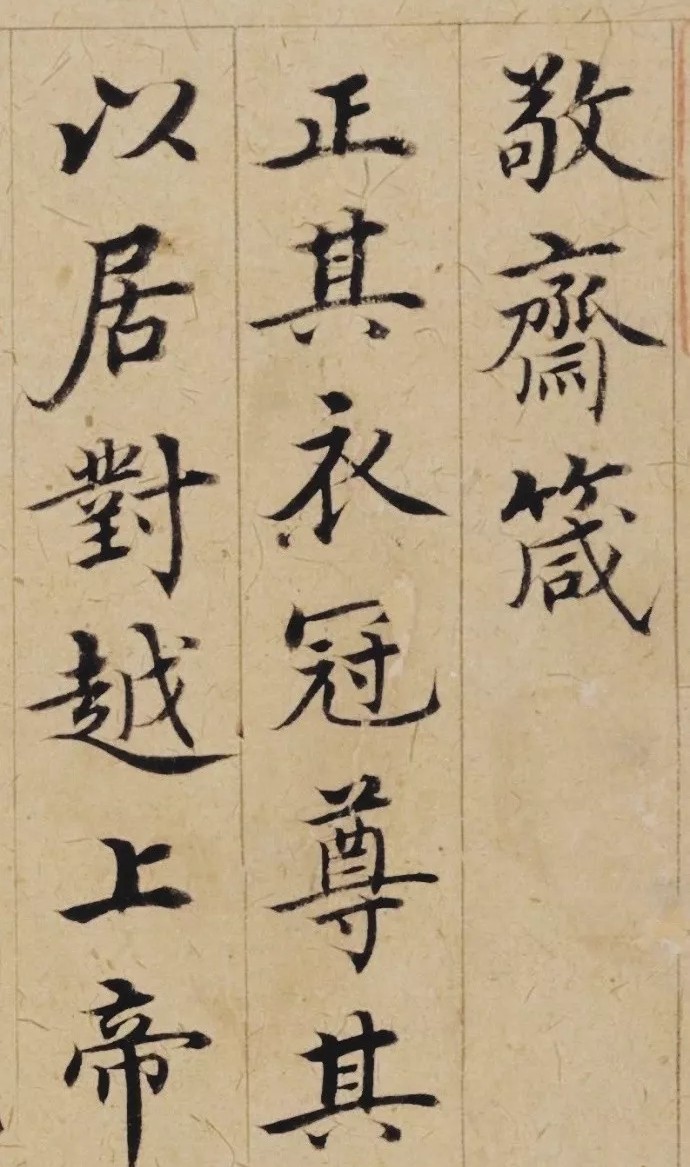 敬齋箴
正其衣冠尊其
以居對越上帝